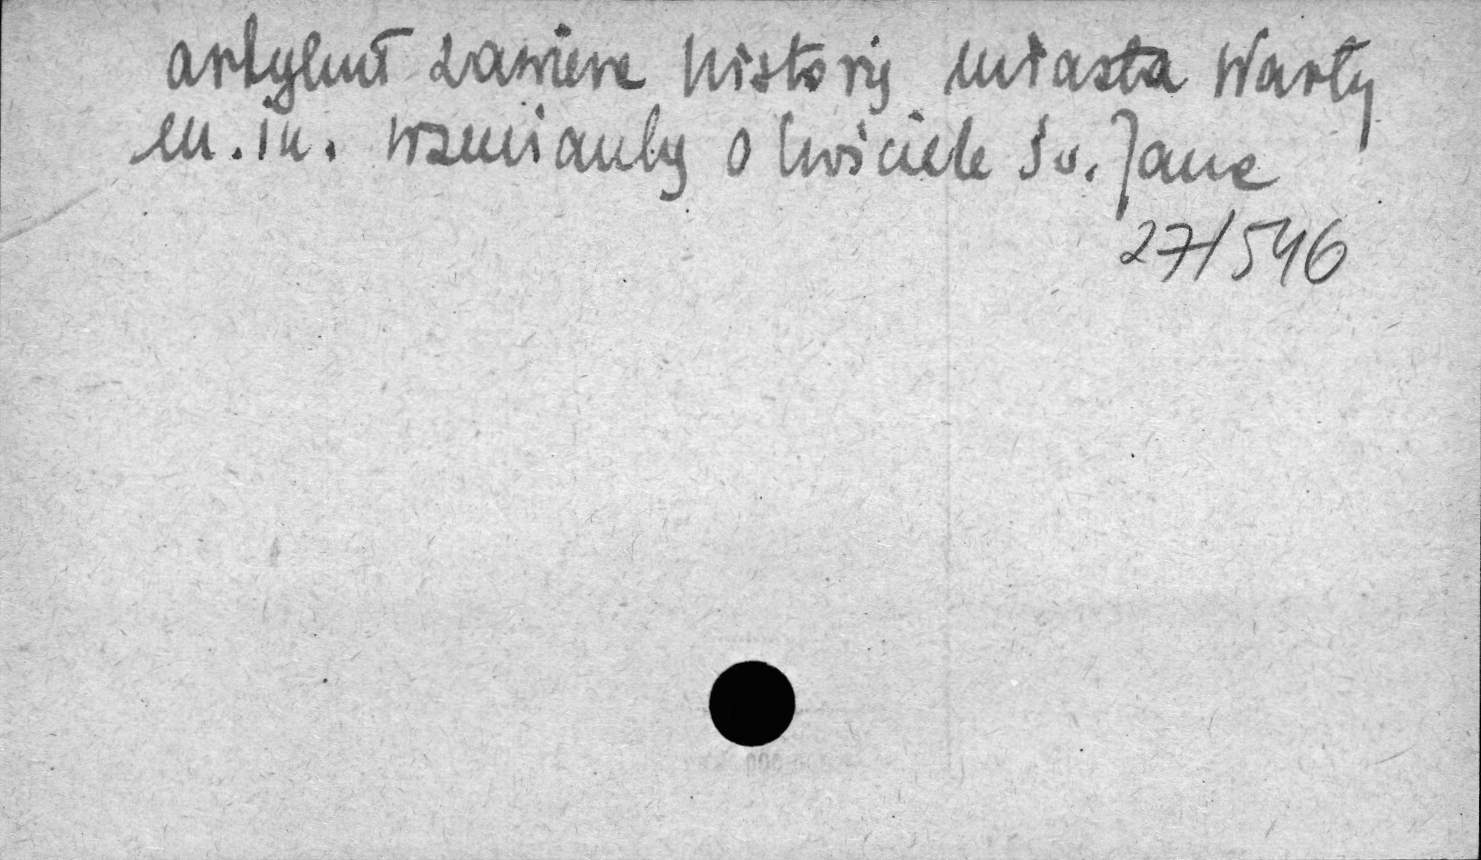 artykuł zawiera historię miasta Warty
m.in. wzmianky o kościele św. Jana
27/546